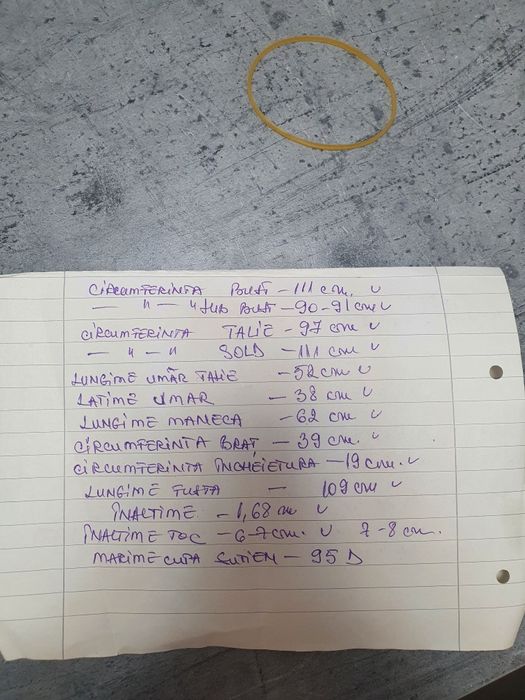 CIRCUMFERINTA BUST - 111 cm. v
— " — " SUB BUST - 90-91 cm v
CIRCUMFERINTA TALIE - 97 cm v
— " — " SOLD - 111 cm v
LUNGIME UMĂR TALIE - 52 cm v
LATIME UMAR - 38 cm v
LUNGIME MANECA - 62 cm v
CIRCUMFERINTA BRAȚ - 39 cm. v
CIRCUMFERINTA ÎNCHEIETURA - 19 cm. v
LUNGIME FUSTA - 109 cm v
ÎNALTIME - 1,68 cm v
ÎNALTIME TOC - 6-7 cm. v 7-8 cm.
MARIME CUPA SUTIEN - 95 D